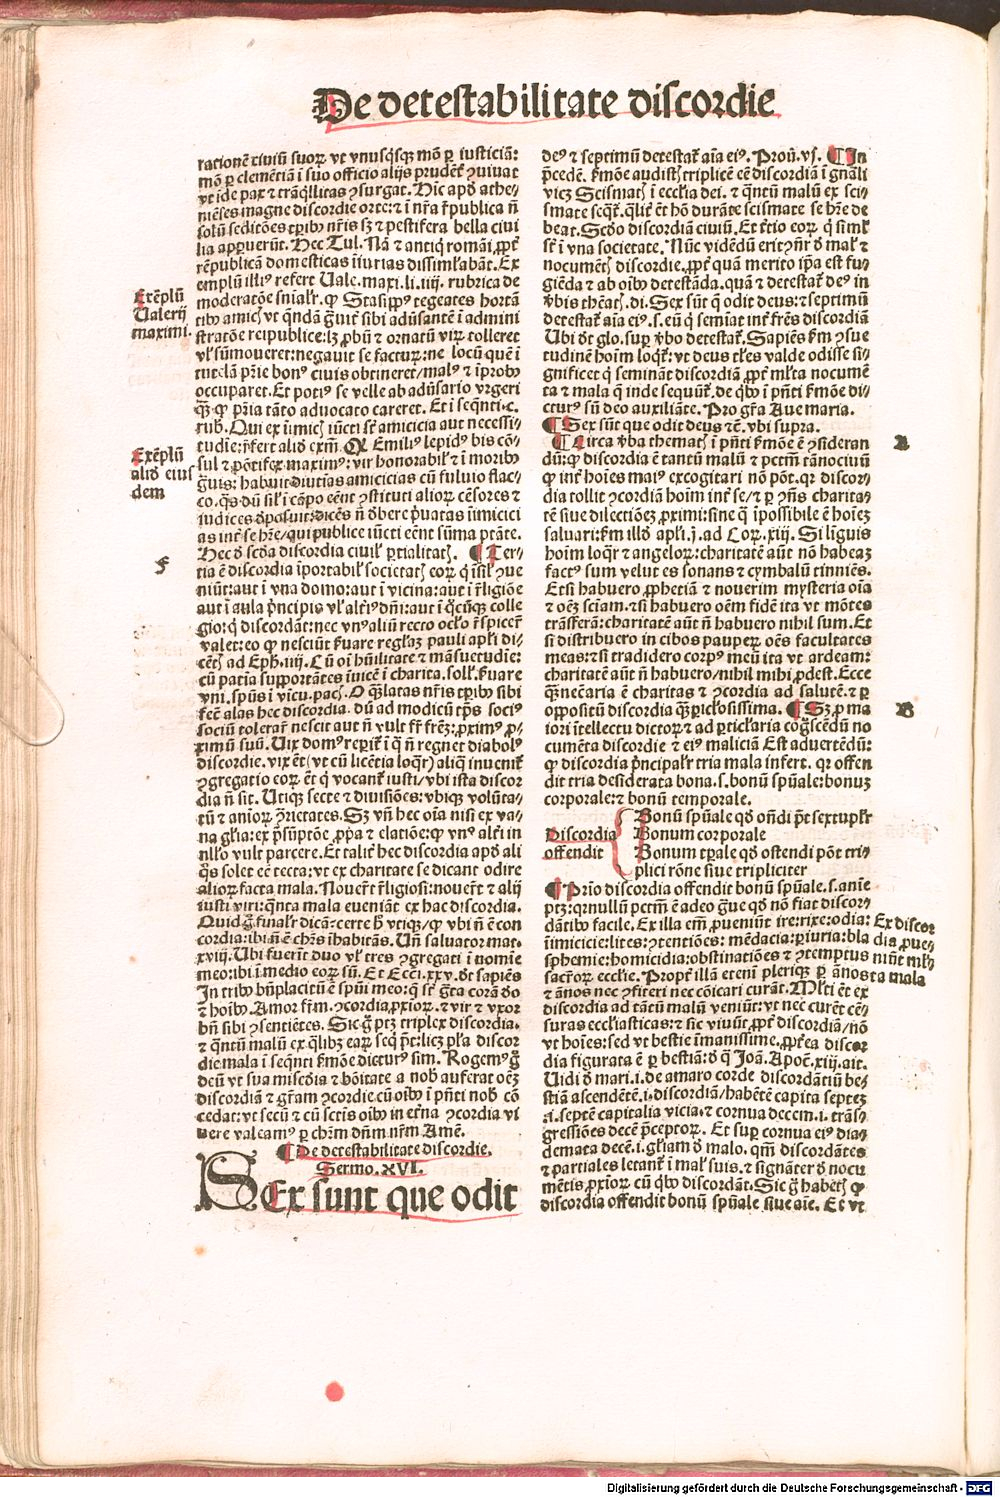 De detestabilitate discordie
rationē ciuiū suoꝝ vt vnusq̄sqȝ mō ꝑ iusticiā:
mō ꝑ clemētiā ī suo officio alijs prudēt̉ ꝯuiuat
vt ide pax ⁊ trāq̄llitas ꝯsurgat. Hic apd̓ athe⸗
niēses magne discordie orte:⁊ ī nr̄a r̄publica ñ
solū seditōes tꝑibꝰ nr̄is sȝ ⁊ pestifera bella ciui
lia apꝑuerūt. Hec Tul. Nā ⁊ antiq̇ romāi ꝓpt̉
rēpublicā domesticas īiurias dissim̄labāt. Ex
emplū illiꝰ refert Uale.maxi.li.iiij. rubrica de
moderatōe
Exēplū
Valerij
maximi.
tutelā pr̄ie bonꝰ ciuis obtineret/malꝰ ⁊ īprobꝰ
occuparet. Et potiꝰ se velle ab aduersario vrgeri
q̄ȝ ꝙ pr̄ia tāto aduocato careret. Et ī seq̄nti.c.
rub. Qui ex īimicꝭ iūcti sr̄ amicicia aut necessi⸗
tudīe:p̄fert aliō exm̄. Q̓ Emiliꝰ lepidꝰ bis cō⸗
Exēplū
aliō eius
dem
sul ⁊ pōtifex maximꝰ:vir honorabil̓ ⁊ ī moribꝰ
as int̉ se h̄re/qui publice iūcti eēnt sūma ptāte.
Hec d̓ scd̓a discordia ciuil̓ ꝑtialitatꝭ. ¶ Ter⸗
f
tia ē discordia īportabil̓ societatꝭ eoꝝ q̇ sil̓ ꝯue
niūt:aut ī vna domo:aut ī vicina:aut ī r̄ligiōe
aut ī aula pͥncipis vl̓ alt̓iꝰ dn̄i:aut ī q̇cūqȝ colle
gio:q̇ discordāt:nec vnꝰ aliū recto oc̄lo r̄spicer̄
valet:eo ꝙ nesciūt ẜuare regl̓aȝ pauli apl̓i di⸗
cētꝭ ad Eph.iiij. Cū oī hūilitate ⁊ māsuetudīe:
cū patīa supportātes īuicē ī charita.soll̓.ẜuare
vni.spūs ī vīcu.pacꝭ. O q̄ȝlatas nr̄is tꝑibꝰ sibi
fecit alas hec discordia. dū ad modicū tp̄s sociꝰ
sociū tolerar̄ nescit aut ñ vult fr̄ frēȝ:ꝓximꝰ ꝓ⸗
ximū suū. Uix domꝰ reꝑit̉ ī q̄ ñ regnet diabolꝰ
discordie. vix ēt (vt cū licētia loq̄r) aliq̄ inuenit̉
ꝯgregatio eoꝝ ēt q̇ vocant̉ iusti/vbi ista discor
dia ñ sit. Utiqȝ secte ⁊ diuisiōes: vbiqȝ volūta⸗
tū ⁊ anīoꝝ ꝯrietates. Sȝ vn̄ hec oīa nisi ex va⸗
na gl̓ia:ex p̄sūptōe ꝓpͥa ⁊ elatiōe:ꝙ vnꝰ alt̓i in
nullo vult parcere. Et talit̉ hec discordia apd̓ ali
q̄s solet eē tecta:vt ex charitate se dicant odire
alioꝝ facta mala. Nouer̄t r̄ligiosi:nouer̄t ⁊ alij
iusti viri:q̄nta mala eueniāt ex hac discordia.
Quid g̊ finalr̄ dicā:certe h̓ vtiqȝ/ꝙ vbi ñ ē con
cordia:ibi ñ ē chr̄s īhabitās. Un̄ saluator mat.
xviij. Ubi fuerīt duo vl̓ tres ꝯgregati ī nomīe
meo:ibi ī medio eoꝝ sū. Et Ecci.xxv. dt̄ sapiēs
In tribꝰ bn̄placitū ē spūi meo:q̄ sr̄ gͣta corā dō
⁊ hoībꝰ. Amor fr̄m. ꝯcordia ꝓxioꝝ. ⁊ vir ⁊ vxor
bn̄ sibi ꝯsentiētes. Sic g̊ ptȝ triplex discordia.
⁊ q̄ntū malū ex q̄libȝ eaꝝ seq̇ pōt:licȝ pl̓a discor
die mala ī seq̄nti ẜmōe dicētur sim. Rogemꝰ g̊
deū vt sua misc̄dia ⁊ bōitate a nobꝭ auferat oēȝ
discordiā ⁊ gr̄am ꝯcordie cū oībꝰ ī pn̄ti nobꝭ cō
cedat:vt secū ⁊ cū sctīs oībꝰ in et̓na ꝯcordia vi
uere valeamꝰ ꝑ chr̄m dn̄m nr̄m Amē.
¶ De detestabilitate discordie.
Sermo.XVI.
SEx sunt que odit
deꝰ ⁊ septimū detestat̉ aīa eiꝰ. Prou̇.vj. ¶ In
p̄cedē. ẜmōe audistꝭ triplicē eē discordiā ī gn̄ali
vicȝ Scismatꝭ ī ecc̄lia dei. ⁊ q̄ntū malū ex sci⸗
smate seq̄t̉. q̄lit̉ ēt hō durāte scismate se h̄re de
beat. Scd̓o discordiā ciuiū. Et t̓tio eoꝝ q̇ siml̓
sr̄ ī vna societate. Nūc vidēdū erit ꝯn̄r d̓ mal̓ ⁊
nocumētꝭ discordie.ꝓpt̉ quā merito ip̄a est fu⸗
giēda ⁊ ab oībꝰ detestāda.quā ⁊ detestat̉ deꝰ in
v̓bis thēatꝭ.di. Sex sūt q̄ odit deus:⁊ septimū
detestat̉ aīa eiꝰ.s.eū q̇ semīat int̉ fr̄es discordiā
Ubi dt̄ glo.suꝑ v̓bo detestat̉. Sapiēs ẜm ꝯsue
tudinē hoīm loq̄t̉:vt deus tl̓es valde odisse si⸗
gnificet q̇ semināt discordiā ꝓpt̉ ml̓ta nocumē
ta ⁊ mala q̄ inde sequūt̉.de q̇bꝰ ī pn̄ti ẜmōe di⸗
cturꝰ sū deo auxiliāte. Pro gr̄a Aue maria.
¶ Sex sūt que odit deus ⁊c̄. vbi supra.
¶ Circa v̓ba thematꝭ ī pn̄ti ẜmōe ē ꝯsideran
A
dū:ꝙ discordia ē tantū malū ⁊ pctm̄ tānociuū
ꝙ int̉ hoīes maiꝰ excogitari nō pōt.qr discor⸗
dia tollit ꝯcordiā hoīm int̉ se/⁊ ꝑ ꝯn̄s charita⸗
tē siue dilectiōeȝ ꝓximi:sine q̄ īpossibile ē hoīeȝ
saluari:ẜm illd̓ apl̓i.j.ad Corꝝ.xiij. Si liguis
hoīm loq̄r ⁊ angeloꝝ:charitatē aūt nō habeaȝ
factꝰ sum velut es sonans ⁊ cymbalū tinniēs.
Etsi habuero ꝓphetiā ⁊ nouerim mysteria oīa
⁊ oēȝ sciam.⁊ si habuero oēm fidē ita vt mōtes
trāsferā:charitatē aūt ñ habuero nihil sum. Et
si distribuero in cibos pauperꝝ oēs facultates
meas:⁊ si tradidero corpꝰ meū ita vt ardeam:
charitatē aūt ñ habuero/nihil mihi ꝓdest. Ecce
q̄ȝ necāria ē charitas ⁊ ꝯcordia ad salutē. ⁊ ꝑ
oppositū discordia q̄ȝ ꝑicl̓osissima. ¶ Sȝ ꝓ ma
B
iori ītellectu dictoꝝ ⁊ ad ꝑticl̓aria cog̓scēdū no
cumēta discordie ⁊ eiꝰ maliciā Est aduertēdū:
ꝙ discordia pͥncipalr̄ tria mala infert. qr offen
dit tria desiderata bona.s.bonū spūale:bonuȝ
corporale:⁊ bonū temporale.
Discordia
offendit
Bonū spūale qd̓ on̄di pōt sextuplr̄
Bonum corporale
Bonum tꝑale qd̓ ostendi pōt tri⸗
plici rōne siue tripliciter
¶ Prīo discordia offendit bonū spūale.s.anīe
ptȝ:qr nullū pctm̄ ē adeo gͣue qd̓ nō fiat discor⸗
dātibꝰ facile. Ex illa em̄ ꝓueniūt ire:rixe:odia:
īimicicie:lites:ꝯtentiōes: mēdacia:ꝑiuria:bla
sphemie:homicidia:obstinatiōes ⁊ ꝯtemptus
Ex discor
dia ꝓue⸗
niūt ml̓
ta mala
sacr̄oꝝ ecclīe. Propt̉ illā etenī pleriqȝ ꝑ ānos
⁊ ānos nec ꝯfiteri nec cōicari curāt. Ml̓ti ēt ex
discordia ad tātū malū veniūt:vt nec curēt cē⸗
suras ecclīasticas:⁊ sic viuūt ꝓpt̉ discordiā/nō
vt hoīes:sed vt bestie īmanissime.ꝓpt̉ea discor
dia figurata ē ꝑ bestiā:d̓ q̄ Joā. Apoc̄.xiij.ait.
Uidi d̓ mari.i.de amaro corde discordātiū be⸗
stiā ascendētē.i.discordiā/habētē capita septeȝ
.i.septē capitalia vicia.⁊ cornua decem.i.trās⸗
gressiōes decē p̄ceptoꝝ. Et suꝑ cornua eiꝰ dia⸗
demata decē.i.gl̓iam d̓ malo.qm̄ discordātes
⁊ partiales letant̉ ī mal̓ suis.⁊ signāter d̓ nocu
mētis ꝓxioꝝ cū q̇bꝰ discordāt. Sic g̊ habetꝭ ꝙ
discordia offendit bonū spūale siue aīe. Et vt
Digitalisierung gefördert durch die Deutsche Forschungsgemeinschaft - DFG